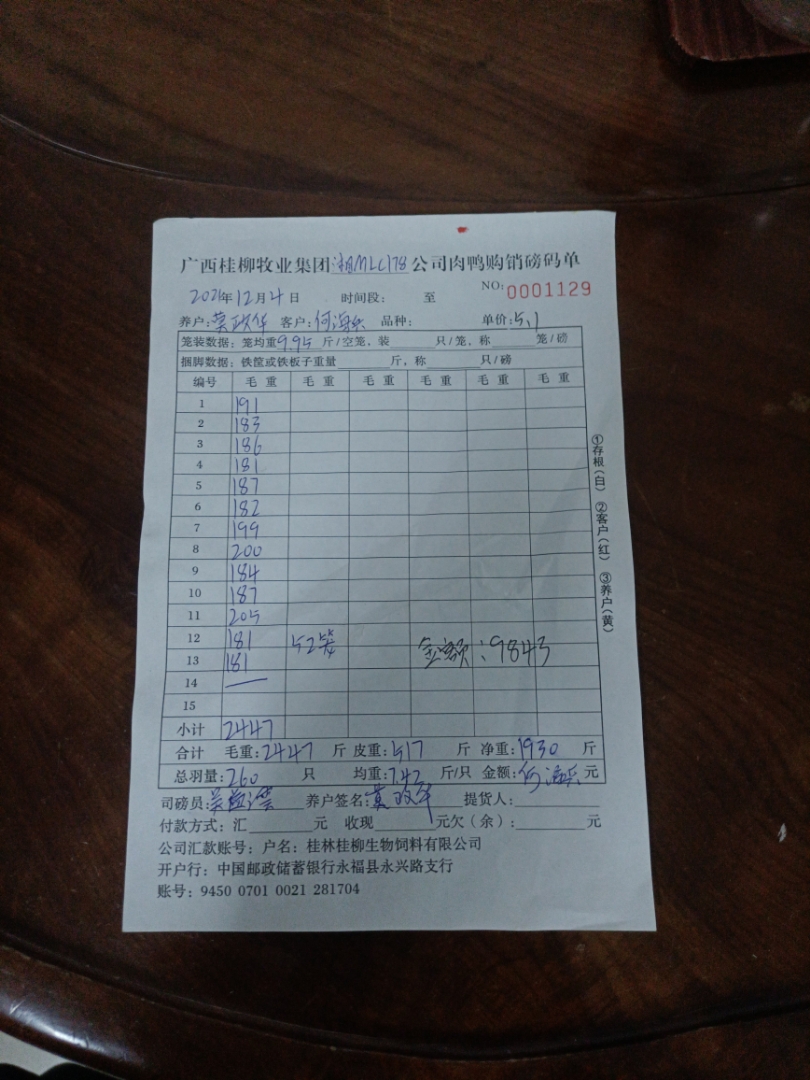 广西桂柳牧业集团湘MLC178公司肉鸭购销磅码单
NO: 0001129
年12月4日 时间段: 至
养户: 黄政华 客户: 何海兵 品种: 单价: 5.1
笼装数据: 笼均重9.95斤/空笼, 装 只/笼, 称 笼/磅
捆脚数据: 铁筐或铁板子重量 斤, 称 只/磅
编号 毛重 毛重 毛重 毛重 毛重 毛重
1 191
2 183
3 186
4 181
5 187
6 182
7 199
8 200
9 184
10 187
11 205
12 181 52笼 金额: 9843
13 181
14 —
15
小计 2447
合计 毛重: 2447 斤 皮重: 517 斤 净重: 1930 斤
总羽量: 260 只 均重: 7.42 斤/只 金额: 何海兵 元
司磅员: 养户签名: 黄政华 提货人:
付款方式: 汇 元 收现 元欠(余): 元
公司汇款账号: 户名: 桂林桂柳生物饲料有限公司
开户行: 中国邮政储蓄银行永福县永兴路支行
账号: 9450 0701 0021 281704
①存根(白) ②客户(红) ③养户(黄)